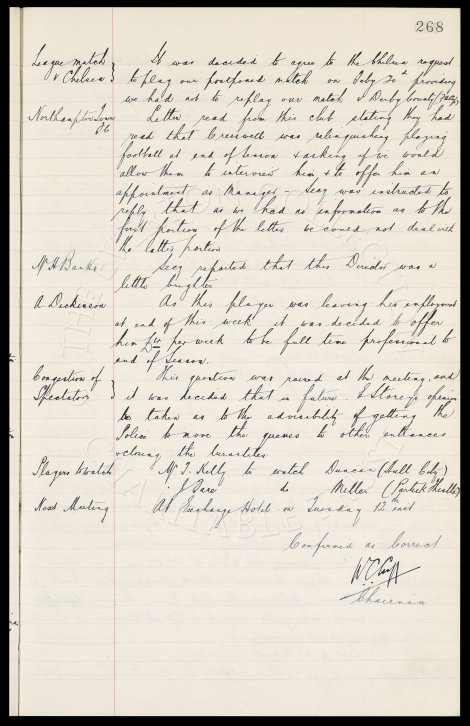 268
League match } It was decided to agree to the Chelsea request
v Chelsea } to play our postponed match on Feby 20th providing
we had not to replay our match v Derby County (Feby
Northampton Town Letter read from this club stating they had
Fc read that Cresswell was relinquishing playing
football at end of season & asking if we would
allow them to interview him & to offer him an
appointment as Manager - Secy was instructed to
reply that as we had no information as to the
first portion of the letter we could not deal with
the latter portion
Mr H. Banks Secy reported that this Director was a
little brighter
A. Dickinson As this player was leaving his employment
at end of this week it was decided to offer
him per week to be full time professional to
end of season.
Congestion of } This question was raised at the meeting, and
Spectators } it was decided that in future opinion
be taken as to the advisability of getting the
Police to move the queues to other entrances
the turnstiles
Players to watch Mr T. Kelly to watch Duncan (Hull City)
" J. do Miller (Partick Thistle)
Next Meeting At Exchange Hotel on Tuesday 12th inst
Confirmed as Correct
W.C. Cuff
Chairman